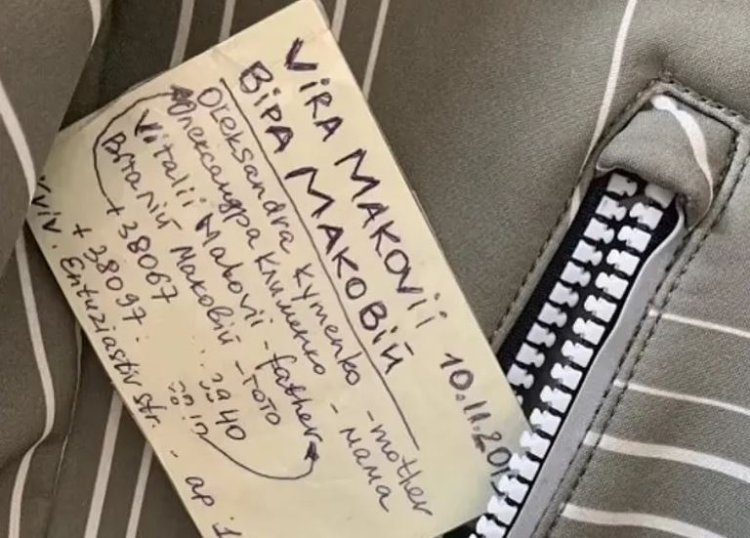 VIRA MAKOVII 10.11.20
ВІРА МАКОВІЙ
Oleksandra Kymenko - mother
Олександра Клименко - мама
Vitalii Makovii - father
Віталій Маковій - тото
+38067 39 40
+38097
Kyiv. Entuziastiv str. - ap 1